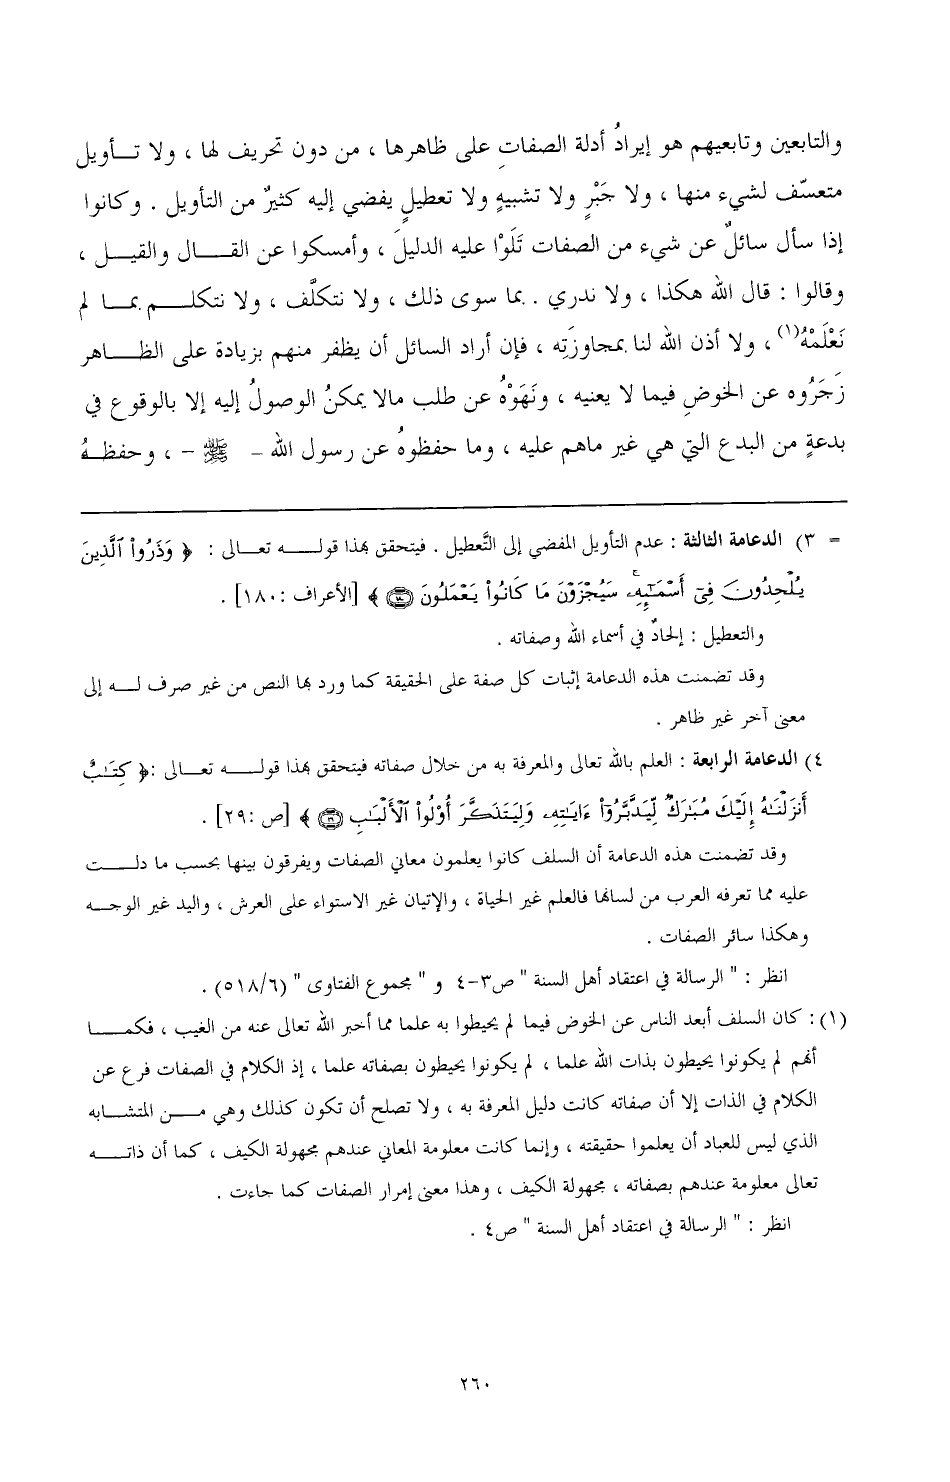 والتابعين وتابعيهم هو إيرادُ أدلة الصفاتِ على ظاهرها ، من دون تحريف لها ، ولا تأويل
متعسّف لشيء منها ، ولا جَبْرٍ ولا تشبيهٍ ولا تعطيلٍ يفضي إليه كثيرٌ من التأويل . وكانوا
إذا سأل سائلٌ عن شيء من الصفات تَلَوْا عليه الدليلَ ، وأمسكوا عن القال والقيل ،
وقالوا : قال الله هكذا ، ولا ندري . بما سوى ذلك ، ولا نتكلَّف ، ولا نتكلم بما لم
نَعْلَمْهُ(١) ، ولا أذن الله لنا بمجاوزتِه ، فإن أراد السائل أن يظفر منهم بزيادة على الظاهر
زَجَرُوه عن الخوضِ فيما لا يعنيه ، ونَهَوْهُ عن طلب مالا يمكنُ الوصولُ إليه إلا بالوقوع في
بدعةٍ من البدع التي هي غير ماهم عليه ، وما حفظوهُ عن رسول الله – ﷺ – ، وحفظهُ
= ٣) الدعامة الثالثة : عدم التأويل المفضي إلى التَّعطيل . فيتحقق بهذا قوله تعالى : ﴿ وَذَرُوا۟ ٱلَّذِينَ
يُلْحِدُونَ فِىٓ أَسْمَٰٓئِهِۦۚ سَيُجْزَوْنَ مَا كَانُوا۟ يَعْمَلُونَ ۝١٨٠ ﴾ [الأعراف :١٨٠] .
والتعطيل : إلحادٌ في أسماء الله وصفاته .
وقد تضمنت هذه الدعامة إثبات كل صفة على الحقيقة كما ورد بها النص من غير صرف له إلى
معنى آخر غير ظاهر .
٤) الدعامة الرابعة : العلم بالله تعالى والمعرفة به من خلال صفاته فيتحقق بهذا قوله تعالى :﴿ كِتَٰبٌ
أَنزَلْنَٰهُ إِلَيْكَ مُبَٰرَكٌ لِّيَدَّبَّرُوٓا۟ ءَايَٰتِهِۦ وَلِيَتَذَكَّرَ أُو۟لُوا۟ ٱلْأَلْبَٰبِ ۝٢٩ ﴾ [ص :٢٩] .
وقد تضمنت هذه الدعامة أن السلف كانوا يعلمون معاني الصفات ويفرقون بينها بحسب ما دلت
عليه مما تعرفه العرب من لسانها فالعلم غير الحياة ، والإتيان غير الاستواء على العرش ، واليد غير الوجه
وهكذا سائر الصفات .
انظر : " الرسالة في اعتقاد أهل السنة " ص٣-٤ و " مجموع الفتاوى " (٥١٨/٦) .
(١): كان السلف أبعد الناس عن الخوض فيما لم يحيطوا به علما مما أخبر الله تعالى عنه من الغيب ، فكما
أنهم لم يكونوا يحيطون بذات الله علما ، لم يكونوا يحيطون بصفاته علما ، إذ الكلام في الصفات فرع عن
الكلام في الذات إلا أن صفاته كانت دليل المعرفة به ، ولا تصلح أن تكون كذلك وهي من المتشابه
الذي ليس للعباد أن يعلموا حقيقته ، وإنما كانت معلومة المعاني عندهم مجهولة الكيف ، كما أن ذاته
تعالى معلومة عندهم بصفاته ، مجهولة الكيف ، وهذا معنى إمرار الصفات كما جاءت .
انظر : " الرسالة في اعتقاد أهل السنة " ص٤ .
٢٦٠